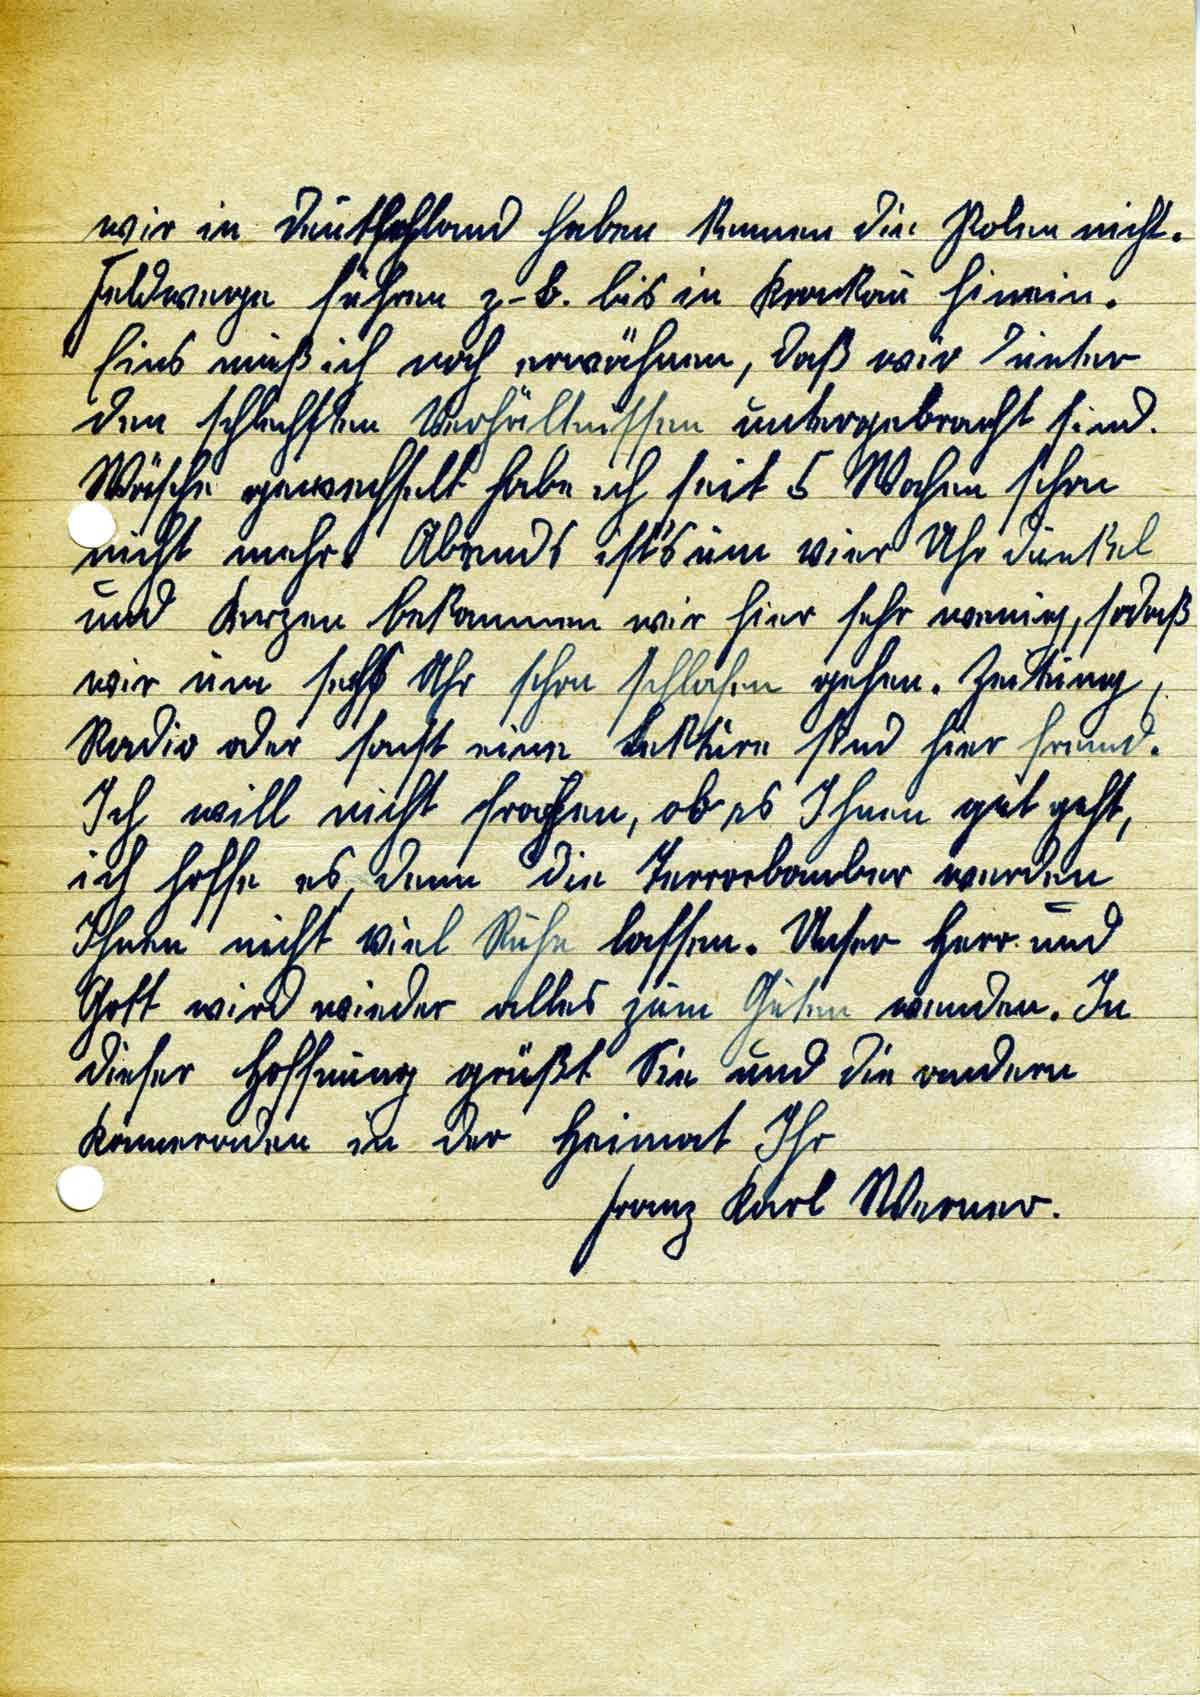 wir in Deutschland haben kennen die Polen nicht.
Feldwege führen z-B. bis in Krakau hinein.
Eins muß ich noch erwähnen, daß wir unter
den schlechsten Verhältnissen untergebracht sind.
Wäsche gewechselt habe ich seit 5 Wochen schon
nicht mehr. Abends ist's um vier Uhr dunkel
und Kerzen bekommen wir hier sehr wenig, sodaß
wir um sechs Uhr schon schlafen gehen. Zeitung,
Radio oder sonst eine Lektüre sind hier fremd.
Ich will nicht fragen, ob es Ihnen gut geht,
ich hoffe es, denn die Terrorbomber werden
Ihnen nicht viel Ruhe lassen. Unser Herr und
Gott wird wieder alles zum Guten wenden. In
dieser Hoffnung grüßt Sie und die andern
Kameraden in der Heimat Ihr
Franz Karl Werner.